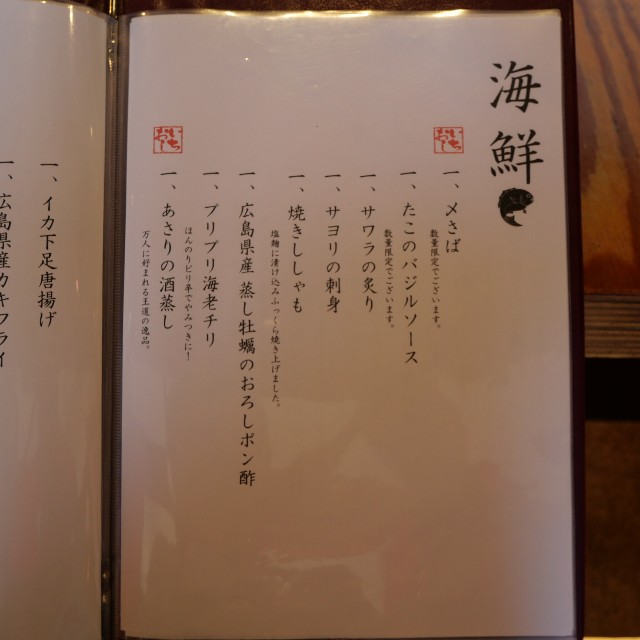 海鮮
いち
おし
一、〆さば
数量限定でございます。
一、たこのバジルソース
数量限定でございます。
一、サワラの炙り
一、サヨリの刺身
一、焼きししゃも
塩麹に漬け込みふっくら焼き上げました。
一、広島県産 蒸し牡蠣のおろしポン酢
一、プリプリ海老チリ
ほんのりピリ辛でやみつきに!
いち
おし
一、あさりの酒蒸し
万人に好まれる王道の逸品。
一、イカ下足唐揚げ
一、広島県産カキフライ